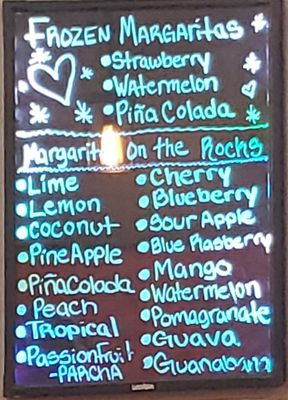 FROZEN MARGARITAS
•Strawberry
•WATermelon
•PiñA Colada
Margaritas On the Rocks
•Lime
•Lemon
•Coconut
•PineApple
•PiñaColada
•Peach
•TRopical
•PassionFruit
-PARCHA
•Cherry
•Blueberry
•Sour Apple
•Blue Rasberry
•Mango
•Watermelon
•Pomagranate
•Guava
•Guanabana